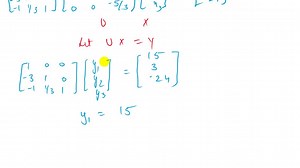 -1 4/3 1 0 0 -5/3
U X
Let U X = Y
[1 0 0
-3 1 0
-1 4/3 1] [y1
y2
y3] = [15
3
-24]
y1 = 15